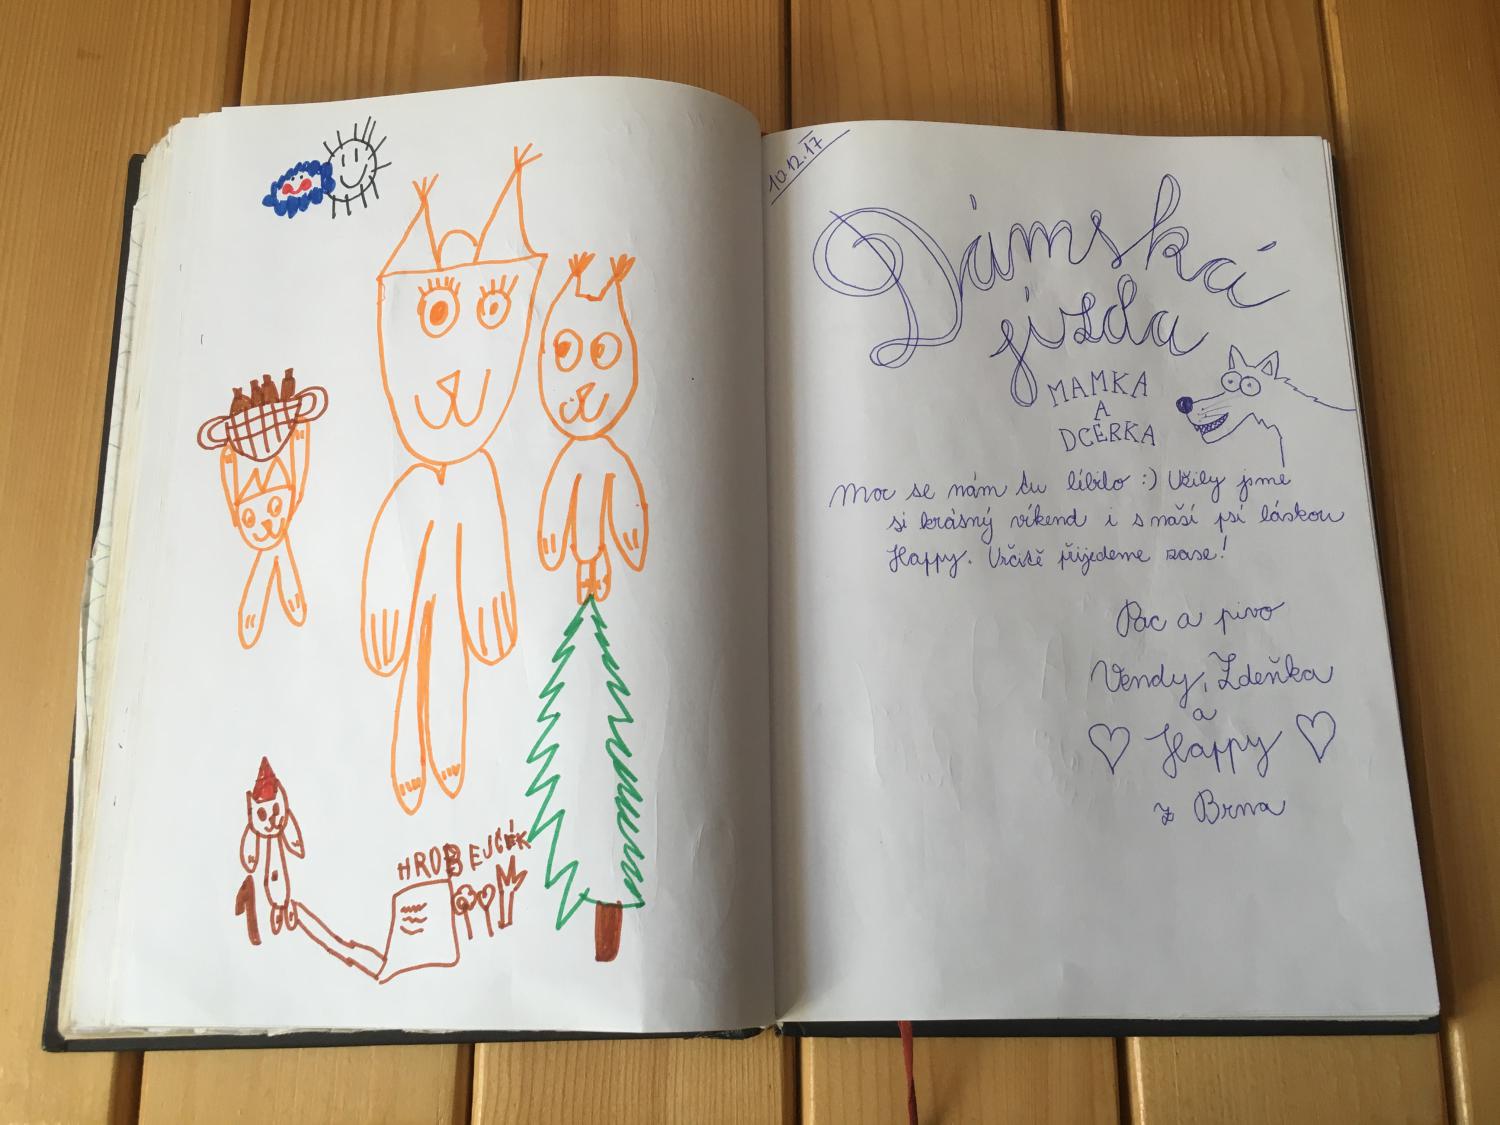 HROBEJČEK
10.12.17
Dámská
jízda
MAMKA
A
DCERKA
Moc se nám tu líbilo :) Užily jsme
si krásný víkend i s naší psí láskou
Happy. Určitě přijedeme zase!
Pac a pivo
Vendy, Zdeňka
a
♡ Happy ♡
z Brna